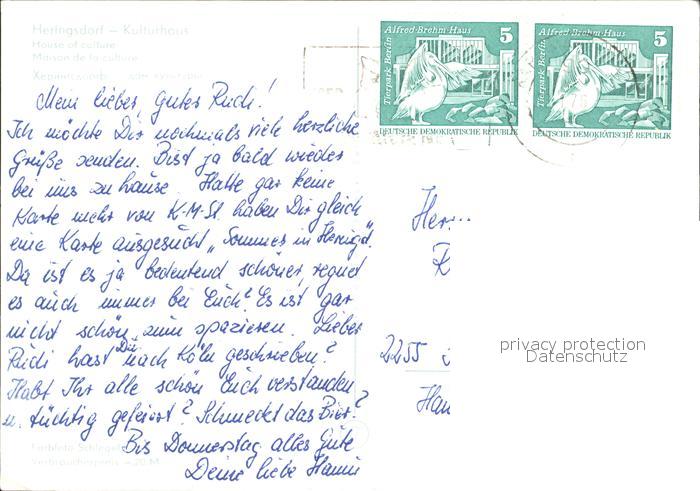 Heringsdorf - Kulturhaus
House of culture
Maison de la culture
Alfred-Brehm-Haus 5
Tierpark Berlin
DEUTSCHE DEMOKRATISCHE REPUBLIK
Alfred-Brehm-Haus 5
Tierpark Berlin
DEUTSCHE DEMOKRATISCHE REPUBLIK
Mein lieber, guter Rudi!
Ich möchte Dir nochmals viele herzliche
Grüße senden. Bist ja bald wieder
bei uns zu hause. Hatte gar keine
Karte mehr von K-M-St. haben Dir gleich
eine Karte ausgesucht „Sommer in
Da ist es ja bedeutend schöner, regnet
es auch immer bei Euch? Es ist gar
nicht schön zum spazieren. Lieber
Rudi hast Du nach Köln geschrieben?
Habt Ihr alle schön Euch verstanden
u. tüchtig gefeiert? Schmeckt das Bier?
Bis Donnerstag alles Gute
Deine liebe Hanni
Her...
2255
Han
privacy protection
Datenschutz
Verbraucherpreis -,20 M